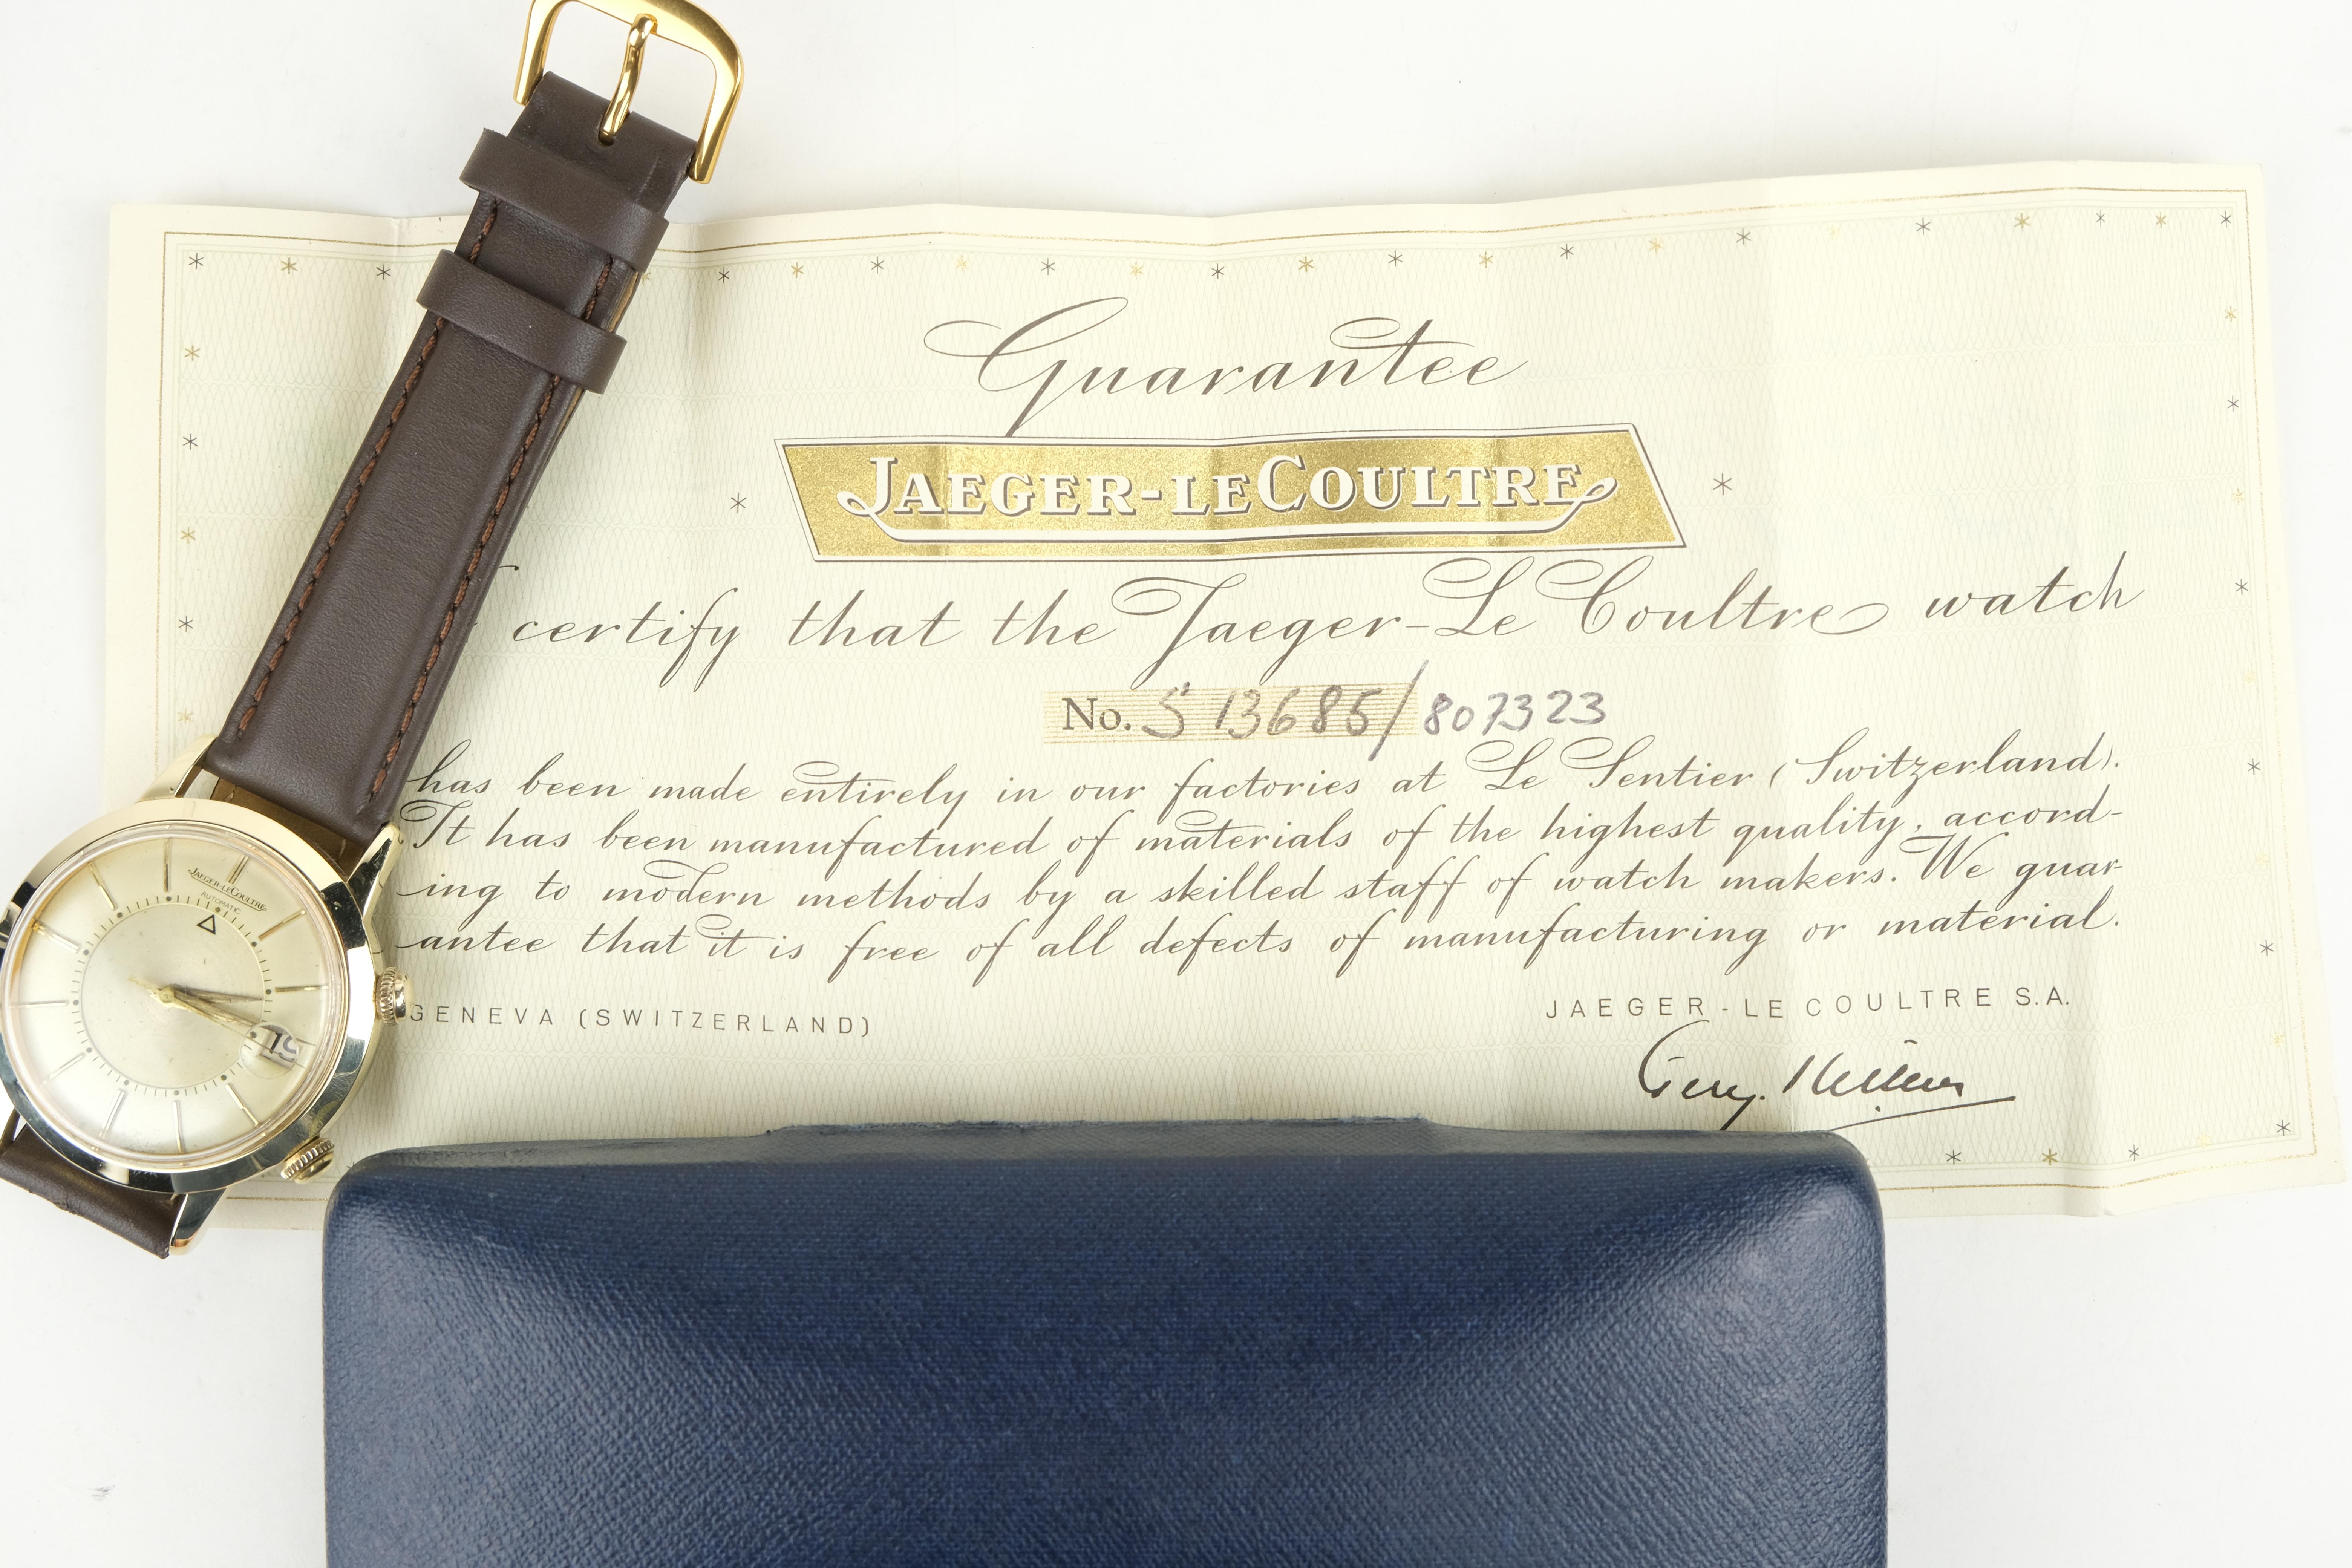 Guarantee
JAEGER-LECOULTRE
certify that the Jaeger-Le Coultre watch
No. S 13685/807323
has been made entirely in our factories at Le Sentier (Switzerland).
It has been manufactured of materials of the highest quality, accord-
ing to modern methods by a skilled staff of watch makers. We guar-
antee that it is free of all defects of manufacturing or material.
GENEVA (SWITZERLAND)
JAEGER-LE COULTRE S.A.
JAEGER-LECOULTRE
AUTOMATIC
19